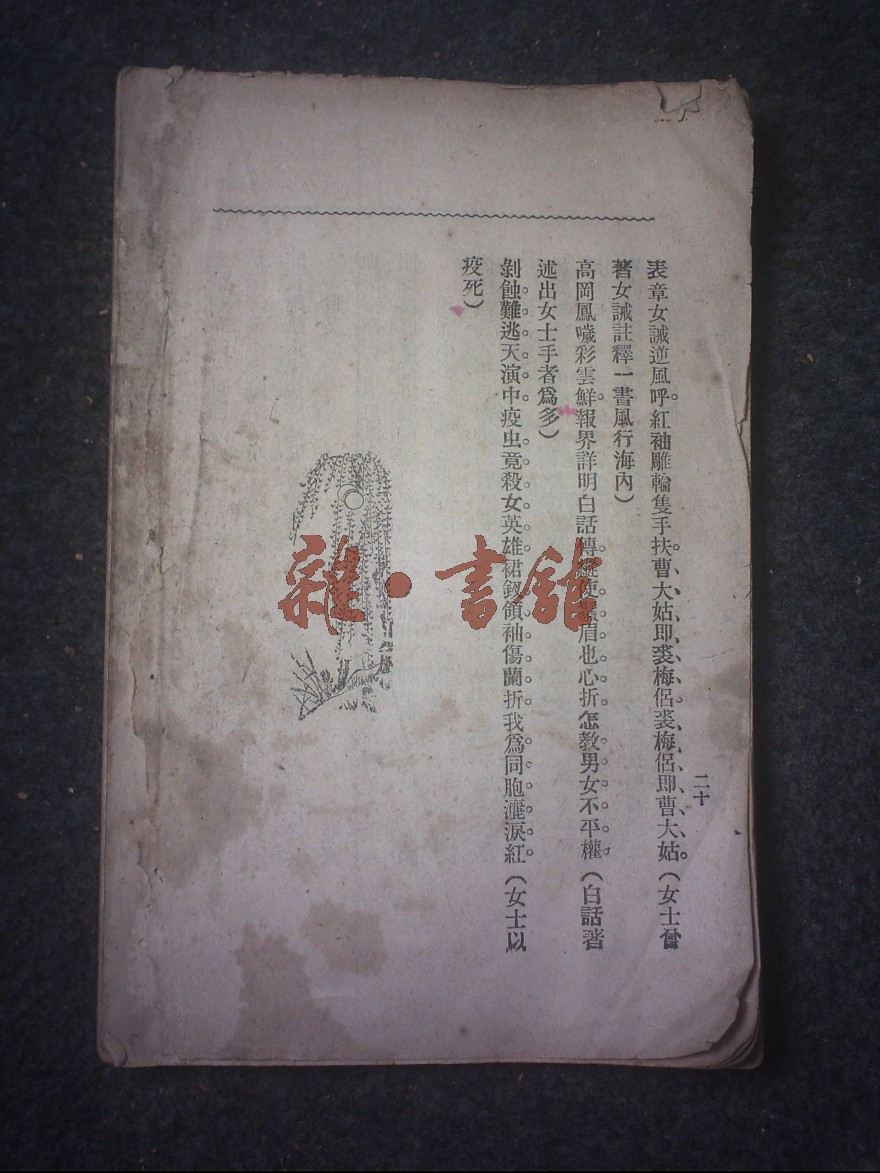 二十
表章女誡逆風呼紅袖雕輪隻手扶曹大姑即裘梅侶裘梅侶即曹大姑。（女士曾
著女誡註釋一書風行海內）
高岡鳳噦彩雲鮮報界詳明白話傳縱使蛾眉也心折怎教男女不平權（白話著
述出女士手者爲多）
剝蝕難逃天演中疫虫竟殺女英雄裙釵領袖傷蘭折我爲同胞灑淚紅（女士以
疫死）
雜·書館